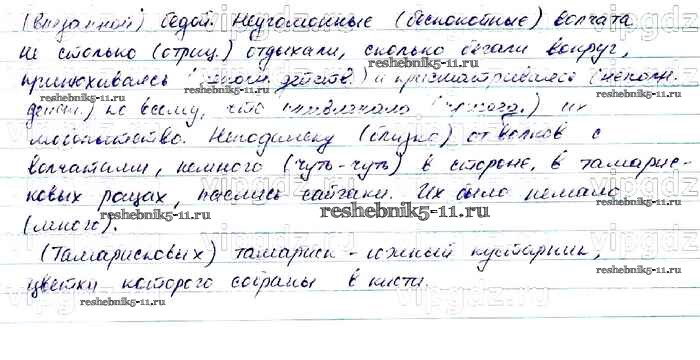 (внезапной) бедой. Неугомонные (беспокойные) волчата
не столько (отриц.) отдыхали, сколько бегали вокруг,
принюхиваясь действ.) и присматриваясь (неполн.
действ.) ко всему, что привлекало их
любопытство. Неподалёку (близко) от волков с
волчатами, немного (чуть-чуть) в стороне, в тамарис-
ковых рощах, паслись сайгаки. Их было немало
(много).
(Тамарисковых) тамариск - южный кустарник,
цветки которого собраны в кисти.
reshebnik5-11.ru
reshebnik5-11.ru
reshebnik5-11.ru
reshebnik5-11.ru
reshebnik5-11.ru
reshebnik5-11.ru
reshebnik5-11.ru
vipgdz.ru